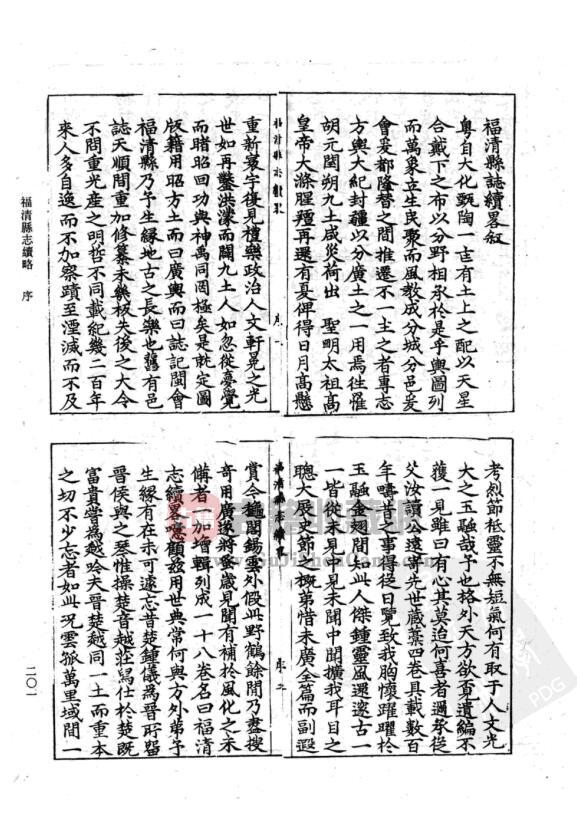 福清縣誌續畧叙
粤自大化甄陶一𠮷有土上之配以天星
合戴下之布以分野相承於是乎輿圖列
而萬象立生民聚而風教成分城分邑爰
會爰都隆替之間推遷不一主之者專志
方輿大紀封疆以分廣土之一用焉徃罹
胡元閏朔九土咸災荷出 聖明太祖高
皇帝大滌腥羶再還有夏俾得日月高懸
重新寰宇復見禮樂政治人文軒冕之光
世如再鑿洪濛而闢九土人如忽從夢覺
而睹昭回功與神禹同罔極矣是就定圖
版籍用昭方土而曰廣輿而曰誌記閩會
福清縣乃予生緣地古之長樂也舊有邑
誌天順間重加修纂未幾板失後之大令
不問重光産之明哲不同載紀幾二百年
來人多自逸而不加察蹟至湮滅而不及
序一
考烈節祇靈不無短氣何有取于人文光
大之玉融哉予也格外天方欲質遺編不
獲一見雖曰有心其莫迫何喜者適承從
父汝讃公遠寄先世歲藁四卷具載數百
年疇昔之事得從日覽致我胸懷躍躍於
玉融金翅間知此人傑鍾靈風還邃古一
一皆從未見中見未聞中聞擴我耳目之
聰大展史節之概第惜未廣全篇而副遐
賞今 閣錫雲外假與野鶴餘閒乃盡搜
奇用廣遂將蚤歲見聞有補於風化之未
備者一加增輯列成一十八卷名曰福清
志續畧噫顧兹用世典常何與方外弟予
生緣有在未可遽忘昔楚鍾儀爲晋所畱
晉侯與之琴惟操楚音越莊舄仕於楚既
富貴嘗爲越吟夫晋楚越同一土而重本
之切不少忘者如此况雲孤萬里域間一
序二
福清縣志續略 序
二〇一
PDG